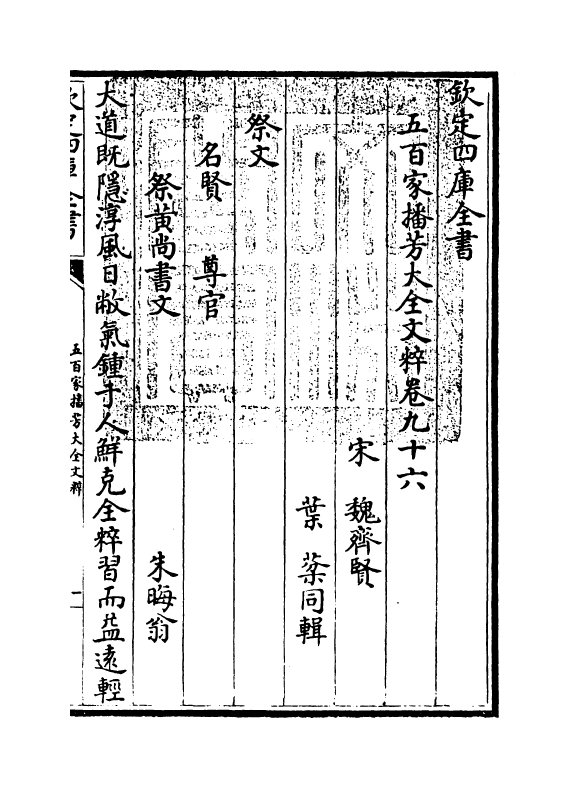 欽定四庫全書
五百家播芳大全文粹卷九十六
宋 魏齊賢
葉 棻同輯
祭文
名賢 尊官
祭黄尚書文 朱晦翁
大道既隱淳風日敝氣鍾于人鮮克全粹習而益遠輕
欽定四庫全書
五百家播芳大全文粹